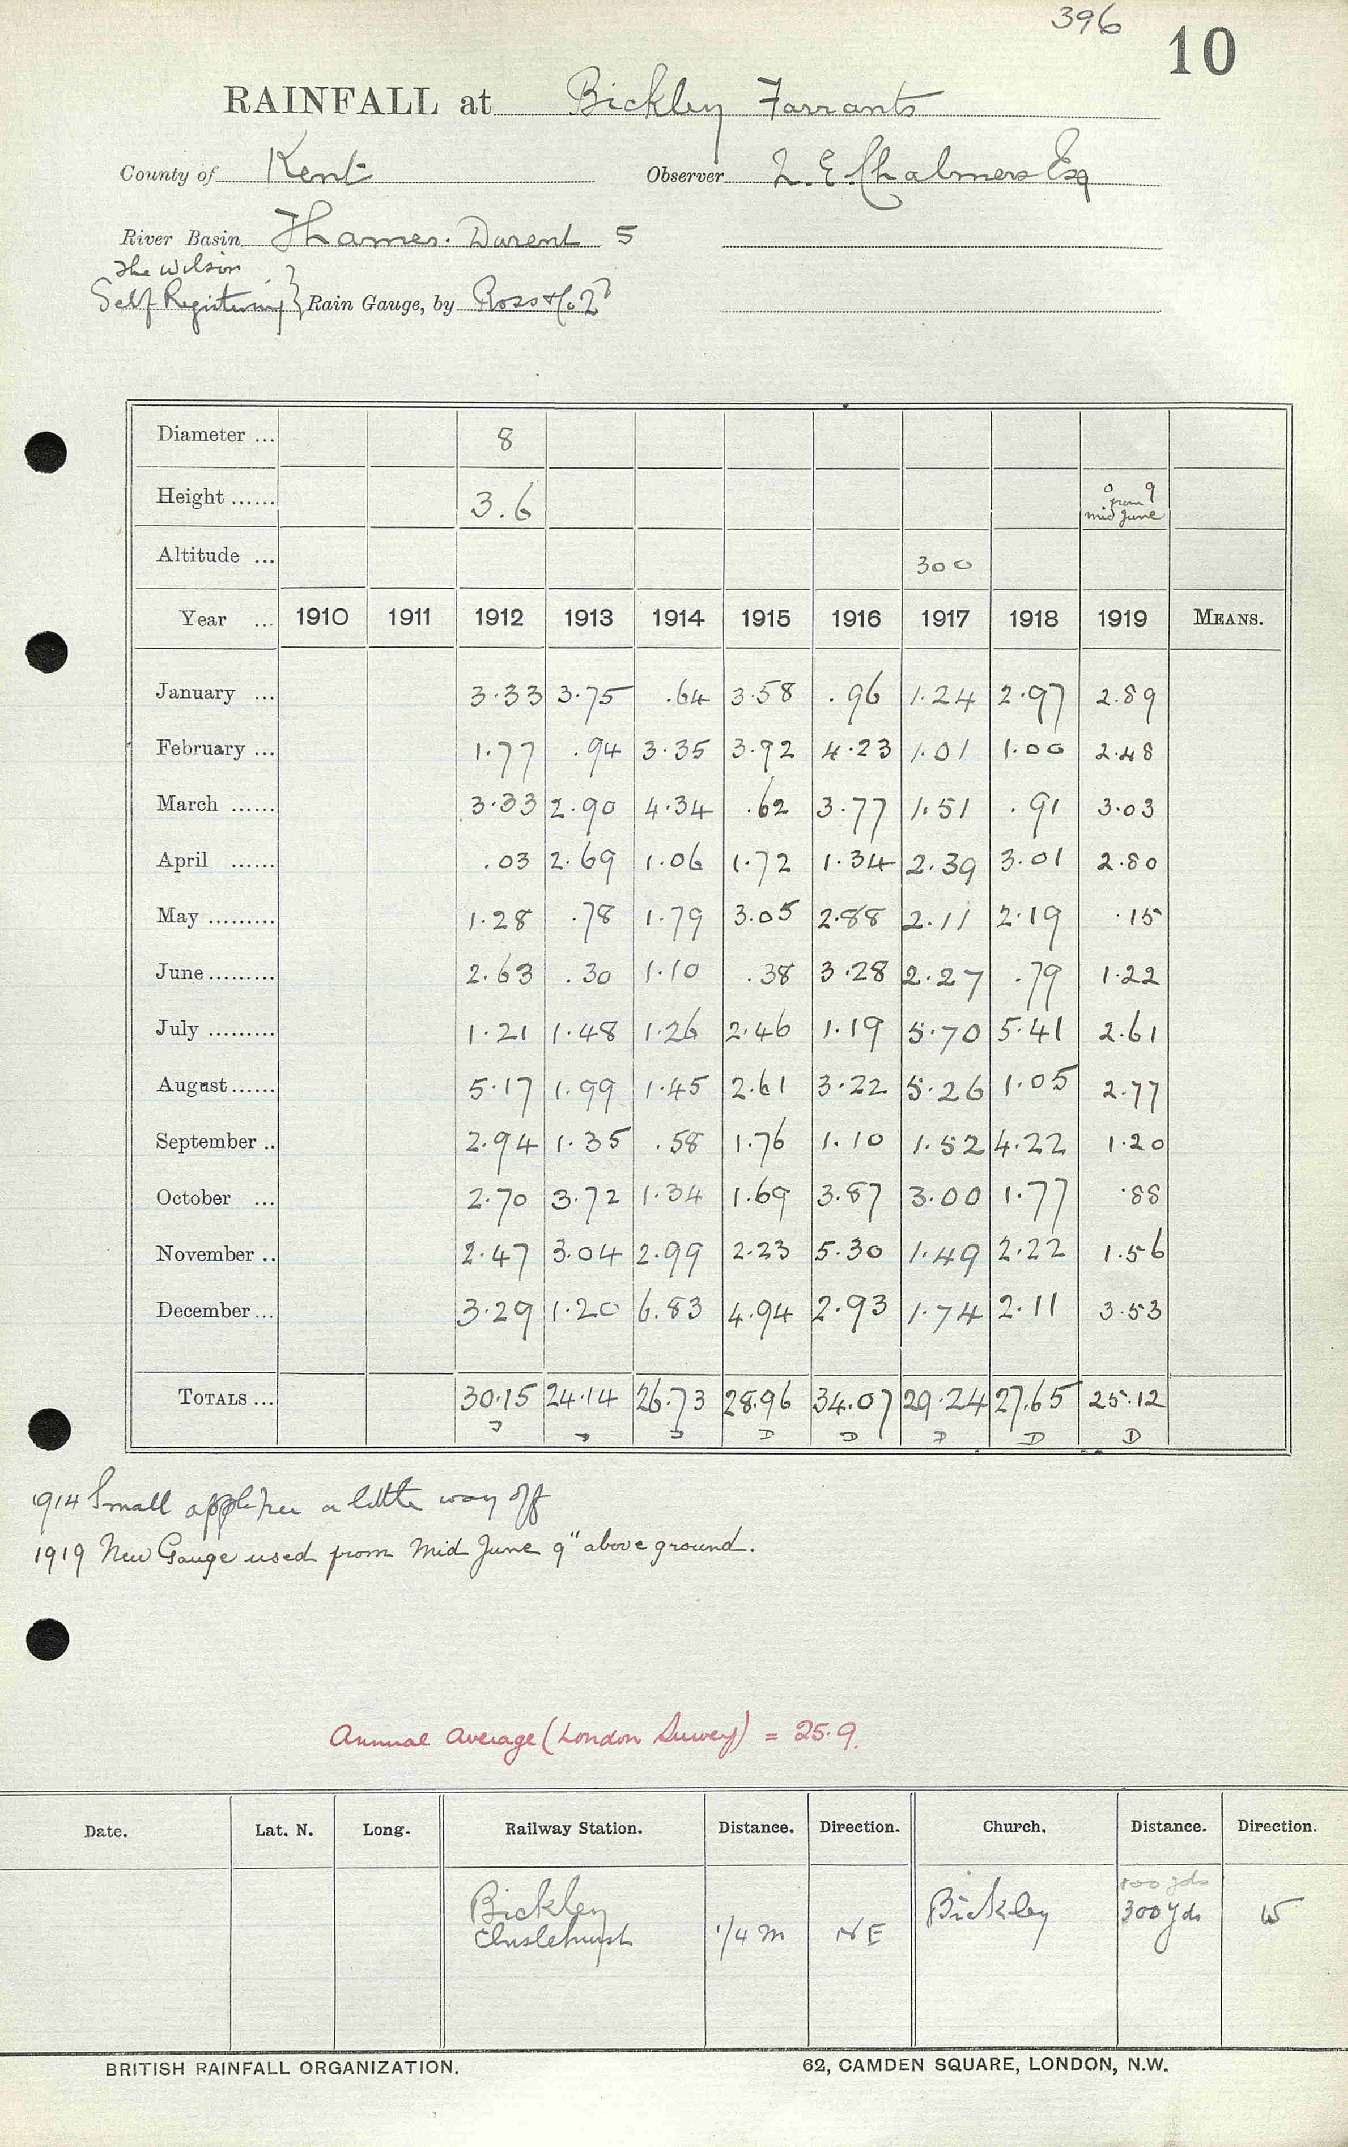 396
10
RAINFALL at Bickley Farrants
County of Kent Observer L. E. Chalmers Esq
River Basin Thames. Darent 5
The Wilson
Self Registering } Rain Gauge, by Ross & Co
Diameter ... 8
Height ...... 3.6 0 from 9
mid June
Altitude ... 300
Year ... 1910 1911 1912 1913 1914 1915 1916 1917 1918 1919 MEANS.
January ... 3.33 3.75 .64 3.58 .96 1.24 2.97 2.89
February ... 1.77 .94 3.35 3.92 4.23 1.01 1.00 2.48
March ...... 3.33 2.90 4.34 .62 3.77 1.51 .91 3.03
April ...... .03 2.69 1.06 1.72 1.34 2.39 3.01 2.80
May ......... 1.28 .78 1.79 3.05 2.88 2.11 2.19 .15
June ......... 2.63 .30 1.10 .38 3.28 2.27 .79 1.22
July ......... 1.21 1.48 1.26 2.46 1.19 5.70 5.41 2.61
August ...... 5.17 1.99 1.45 2.61 3.22 5.26 1.05 2.77
September .. 2.94 1.35 .58 1.76 1.10 1.52 4.22 1.20
October ... 2.70 3.72 1.34 1.69 3.87 3.00 1.77 .88
November .. 2.47 3.04 2.99 2.23 5.30 1.49 2.22 1.56
December ... 3.29 1.20 6.83 4.94 2.93 1.74 2.11 3.53
TOTALS ... 30.15 24.14 26.73 28.96 34.07 29.24 27.65 25.12
D D D D D D D D
1914 Small apple tree a little way off
1919 New Gauge used from Mid June 9" above ground.
Annual Average (London Survey) = 25.9.
Date. Lat. N. Long. Railway Station. Distance. Direction. Church. Distance. Direction.
800 yds
Bickley Bickley 300 yds W
Chislehurst 1/4 m NE
BRITISH RAINFALL ORGANIZATION. 62, CAMDEN SQUARE, LONDON, N.W.